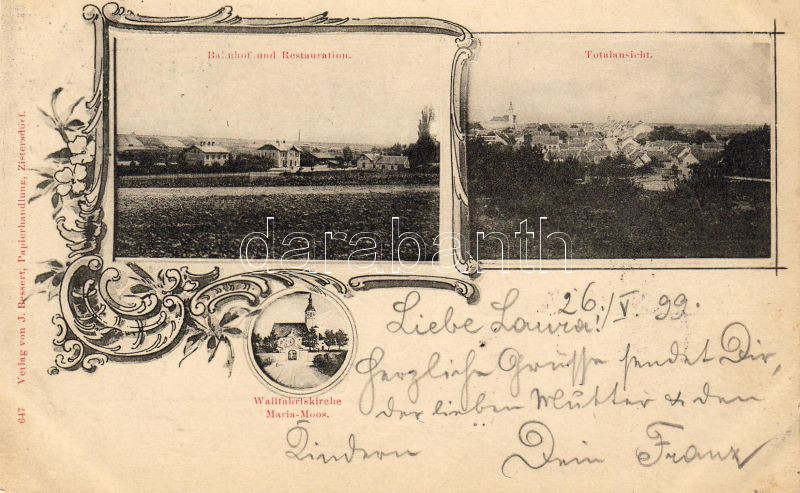 Bahnhof und Restauration.
Totalansicht.
647 Verlag von J. Bessert, Papierhandlung, Zistersdorf.
darabanth.com
Wallfahrtskirche
Maria-Moos.
26./V. 99.
Liebe Laura!
Herzliche Grüsse sendet Dir,
der lieben Mutter & den
Kindern Dein Franz